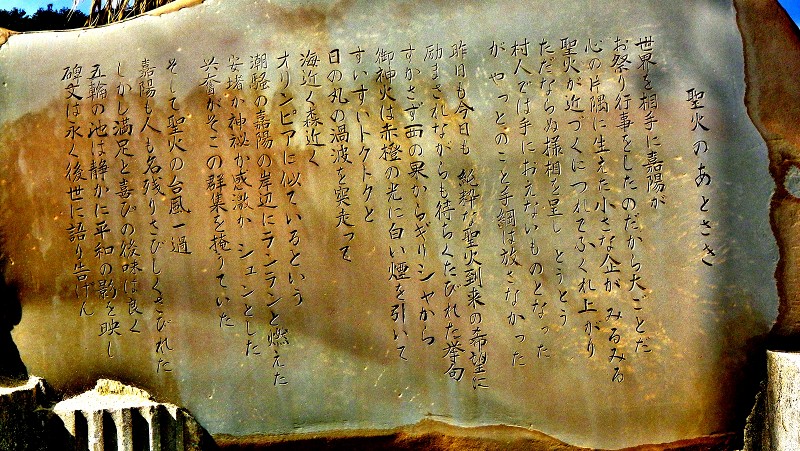 聖火のあとさき
世界を相手に嘉陽が
お祭り行事をしたのだから大ごとだ
心の片隅に生えた小さな企が みるみる
聖火が近づくにつれてふくれ上がり
ただならぬ様相を呈し とうとう
村人では手におえないものとなった
が やっとのこと手綱は放さなかった
昨日も今日も 純粋な聖火到来の希望に
励まされながらも待ちくたびれた挙句
すかさず西の果からギリシャから
御神火は赤橙の光に白い煙を引いて
すいすいトクトクと
日の丸の渦波を突走って
海近く森近く
オリンピアに似ているという
潮騒の嘉陽の岸辺にランランと燃えた
安堵か神秘か感激か シュンとした
興奮がそこの群集を掩うていた
そして聖火の台風一過
嘉陽も人も名残りさびしくさびれた
しかし満足と喜びの後味は良く
五輪の池は静かに平和の影を映し
碑文は永く後世に語り告げん